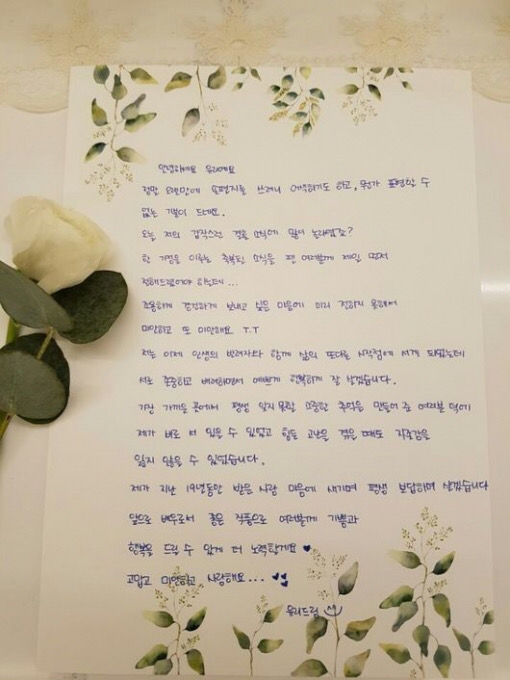 안녕하세요 유리에요
정말 오랜만에 손편지를 쓰려니 어색하기도 하고, 뭔가 표현할 수
없는 기분이 드네요.
오늘 저의 갑작스런 결혼 소식에 많이 놀라셨죠?
한 가정을 이루는 축복된 소식을 팬 여러분께 제일 먼저
전해드렸어야 하는데...
조용하게 경건하게 보내고 싶은 마음에 미리 전하지 못해서
미안하고 또 미안해요 T.T
저는 이제 인생의 반려자와 함께 삶의 또다른 시작점에 서게 되었는데
서로 존중하고 배려하면서 예쁘게 행복하게 잘 살겠습니다.
가장 가까운 곳에서 평생 잊지 못할 소중한 추억을 만들어 준 여러분 덕에
제가 바로 서 있을 수 있었고 힘든 고난을 겪을 때도 자존감을
잃지 않을 수 있었습니다.
제가 지난 19년동안 받은 사랑 마음에 새기며 평생 보답하며 살겠습니다
앞으로 배우로서 좋은 작품으로 여러분께 기쁨과
행복을 드릴 수 있게 더 노력할게요 ♥
고맙고 미안하고 사랑해요... ♥♥
유리드림